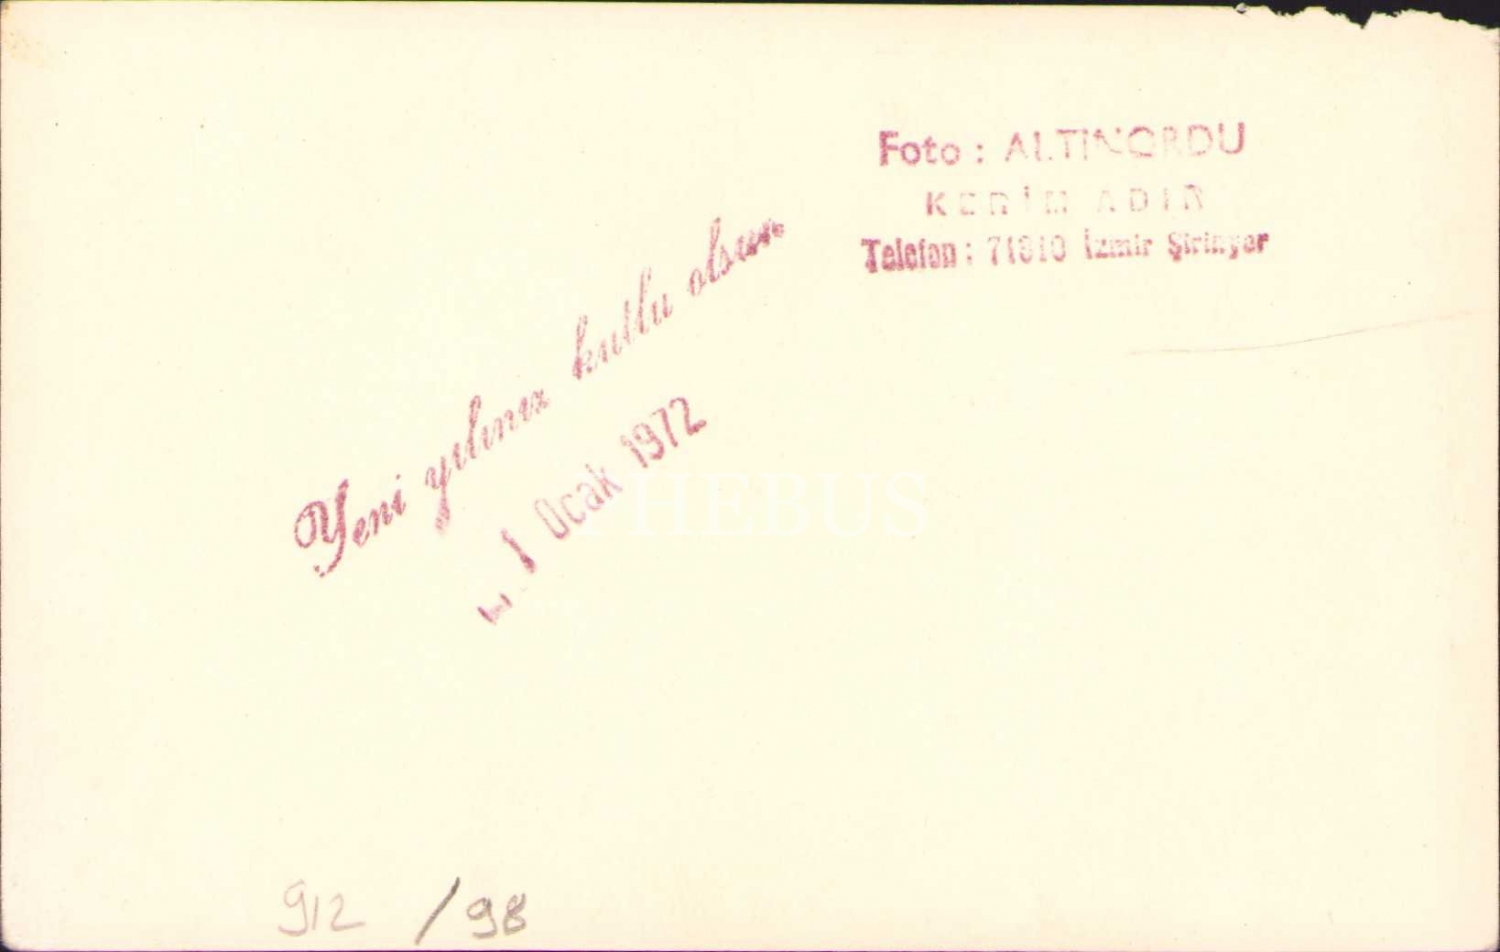 Foto : ALTINORDU
KERİM ADIR
Telefon : 71010 İzmir Şirinyer
Yeni yılınız kutlu olsun
1 Ocak 1972
PHEBUS
912 / 98